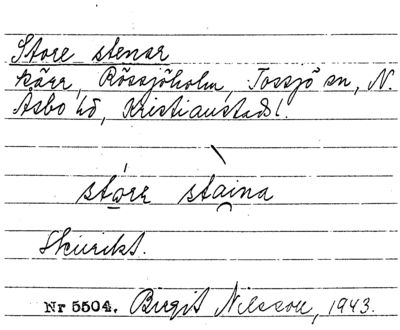 Store stenar
kärr, Rössjöholm, Tossjö sn, N.
Åsbo hd, Kristianstads l.
stǫrr staina
Skriftl.
Nr 5504. Birgit Nilsson, 1943.